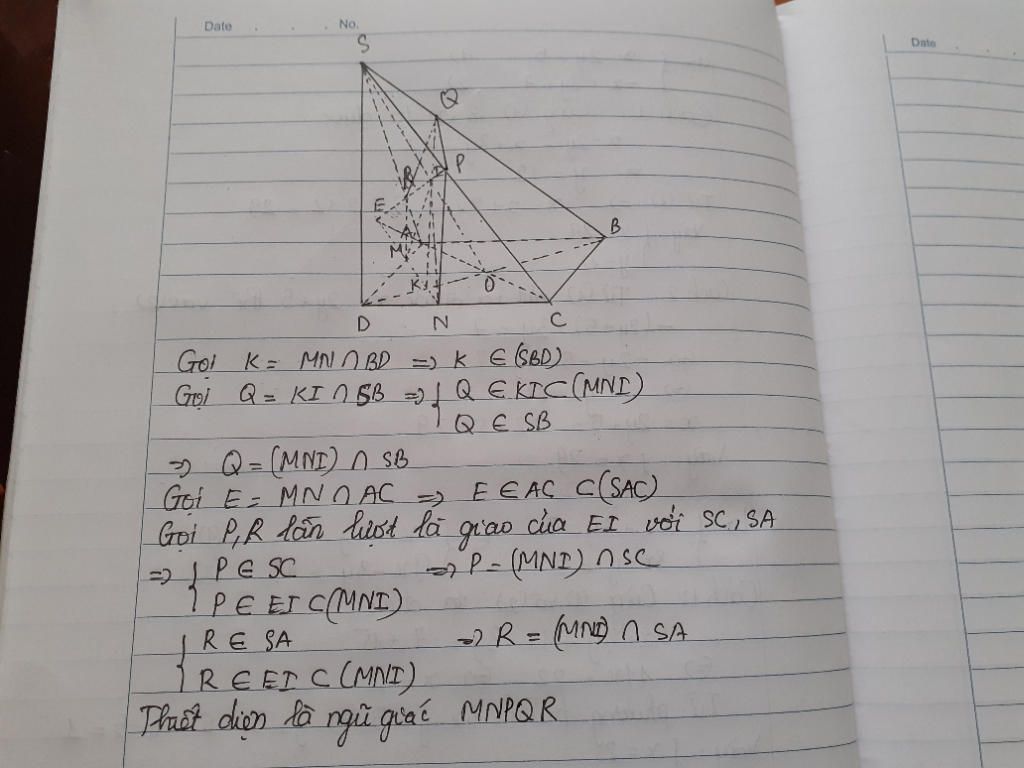 Date No.
Date
S
Q
P
R
E
A
B
M
K
O
D N C
Gọi K = MN ∩ BD => K ∈ (SBD)
Gọi Q = KI ∩ SB => { Q ∈ KI ⊂ (MNI)
Q ∈ SB
=> Q = (MNI) ∩ SB
Gọi E = MN ∩ AC => E ∈ AC ⊂ (SAC)
Gọi P, R lần lượt là giao của EI với SC, SA
=> { P ∈ SC => P = (MNI) ∩ SC
P ∈ EI ⊂ (MNI)
{ R ∈ SA => R = (MNI) ∩ SA
R ∈ EI ⊂ (MNI)
Thiết diện là ngũ giác MNPQR